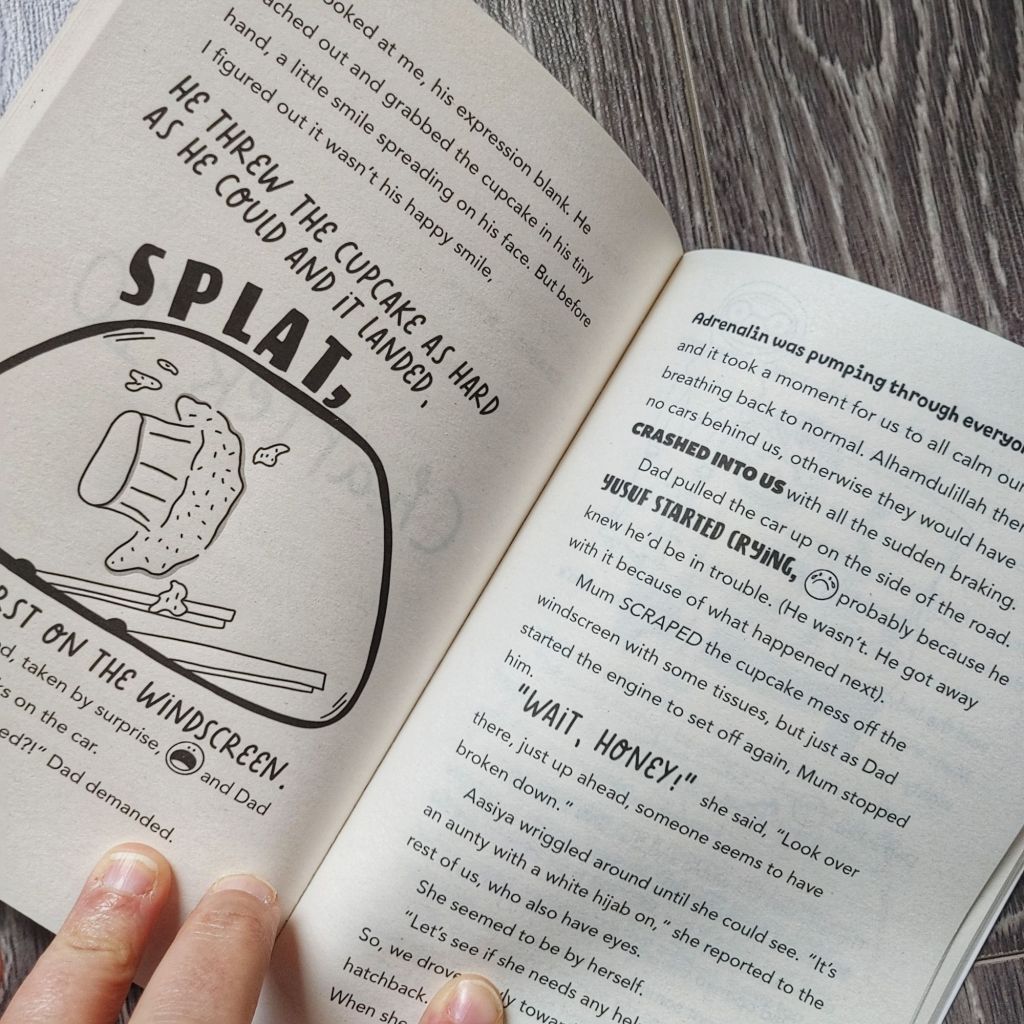 ooked at me, his expression blank. He
ached out and grabbed the cupcake in his tiny
hand, a little smile spreading on his face. But before
I figured out it wasn't his happy smile,
HE THREW THE CUPCAKE AS HARD
AS HE COULD AND IT LANDED,
SPLAT,
RST ON THE WINDSCREEN.
taken by surprise, and Dad
on the car.
Dad demanded.
Adrenalin was pumping through everyon
and it took a moment for us to all calm our
breathing back to normal. Alhamdulillah ther
no cars behind us, otherwise they would have
CRASHED INTO US with all the sudden braking.
Dad pulled the car up on the side of the road.
YUSUF STARTED CRYING, probably because he
knew he'd be in trouble. (He wasn't. He got away
with it because of what happened next).
Mum SCRAPED the cupcake mess off the
windscreen with some tissues, but just as Dad
started the engine to set off again, Mum stopped
him.
"WAIT, HONEY!" she said, "Look over
there, just up ahead, someone seems to have
broken down."
Aasiya wriggled around until she could see. "It's
an aunty with a white hijab on," she reported to the
rest of us, who also have eyes.
She seemed to be by herself.
"Let's see if she needs any hel
So, we drove
hatchback.
When she